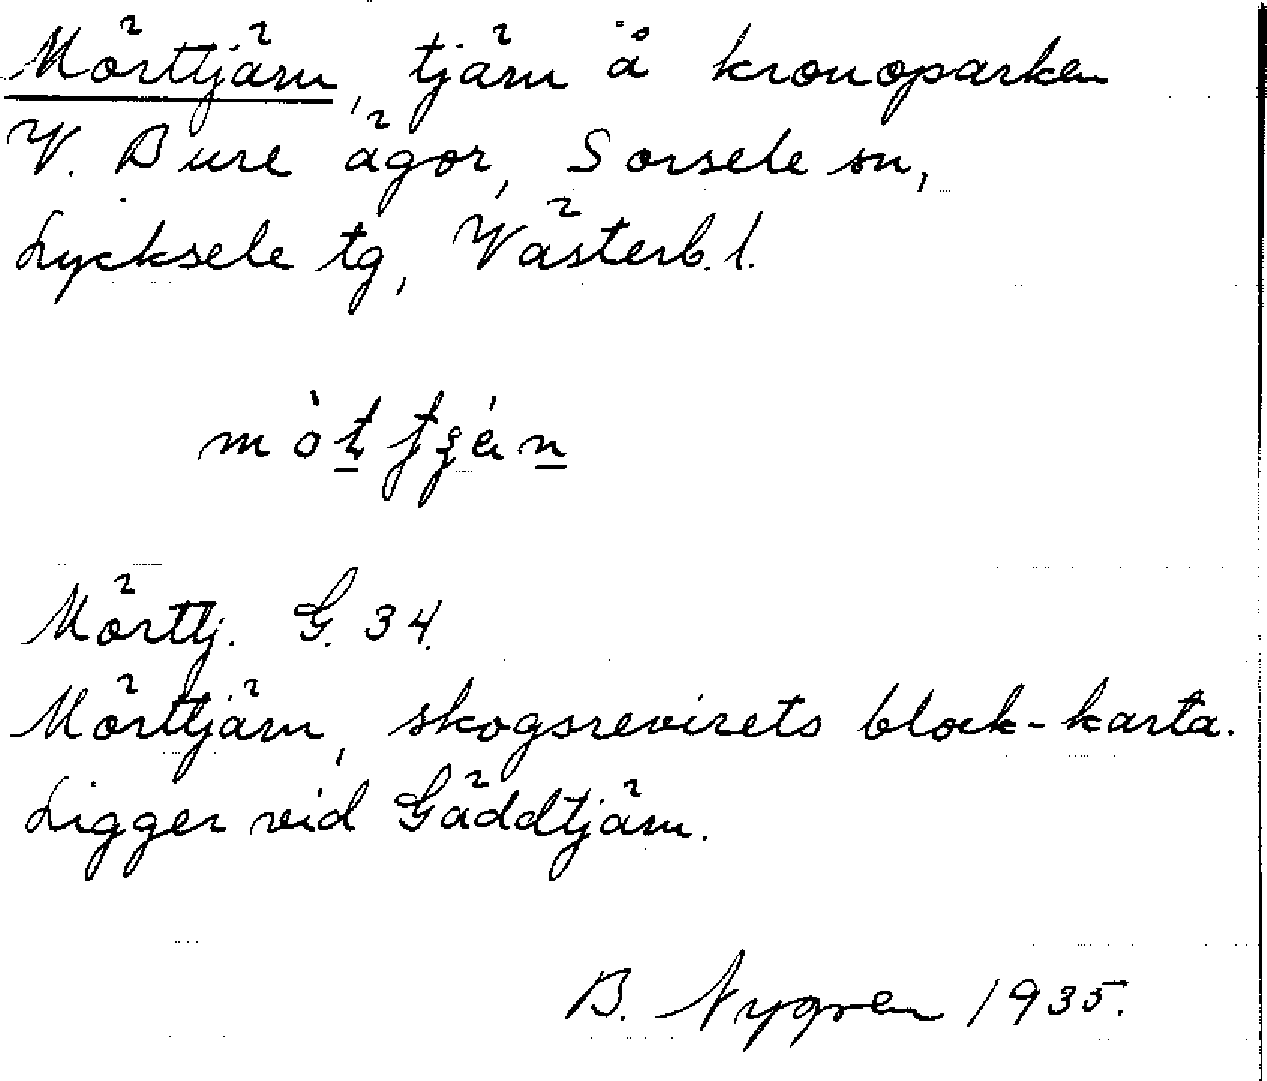 Mörttjärn, tjärn å kronoparken
V. Bure ägor, Sorsele sn,
Lycksele tg, Västerb. l.
Mörttj. G. 34.
Mörttjärn, skogsrevirets block-karta.
Ligger vid Gäddtjärn.
B. Nygren 1935.